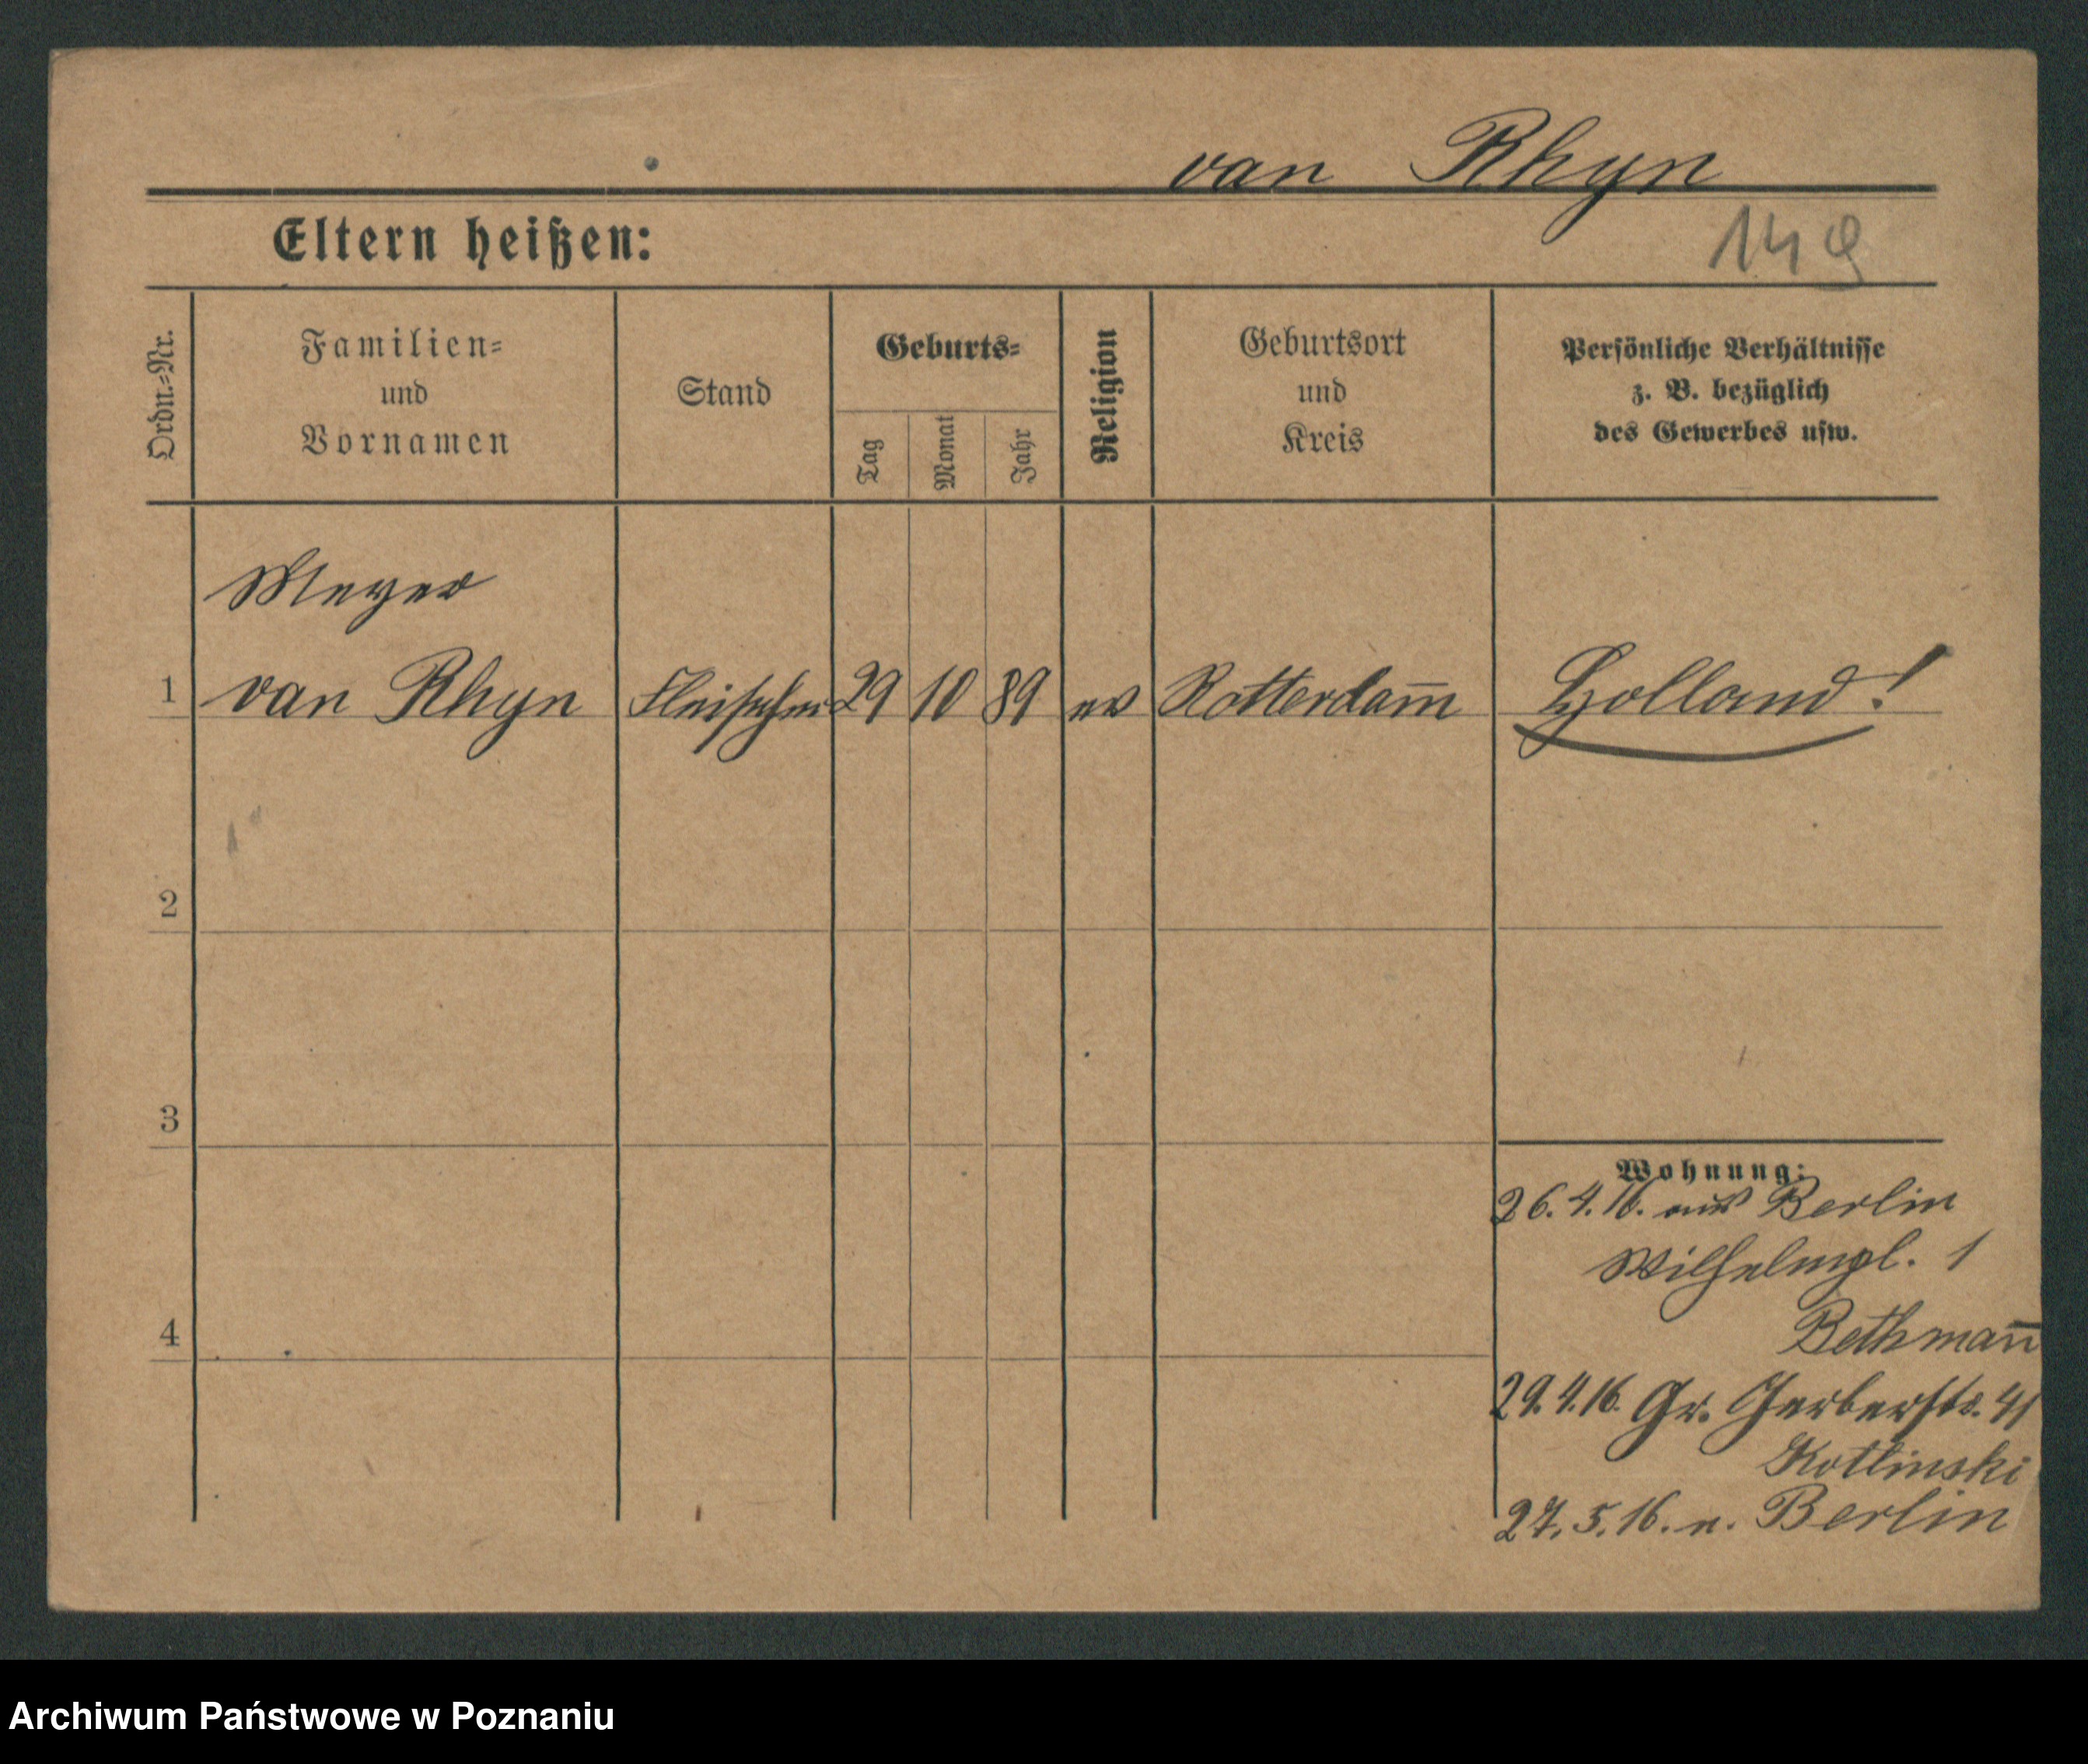 van Rhyn
Eltern heißen:
149
Ordn.-Nr.
Familien-
und
Vornamen
Stand
Geburts-
Tag
Monat
Jahr
Religion
Geburtsort
und
Kreis
Persönliche Verhältnisse
z. B. bezüglich
des Gewerbes usw.
Meyer
1 van Rhyn Fleischer 29 10 89 ev Rotterdam̅ Holland!
2
3
4
Wohnung:
26. 4. 16. aus Berlin
Wilhelmpl. 1
Bethman̅
29. 4. 16. Gr. Gerberstr. 41
Kotlinski
27. 5. 16. n. Berlin
Archiwum Państwowe w Poznaniu